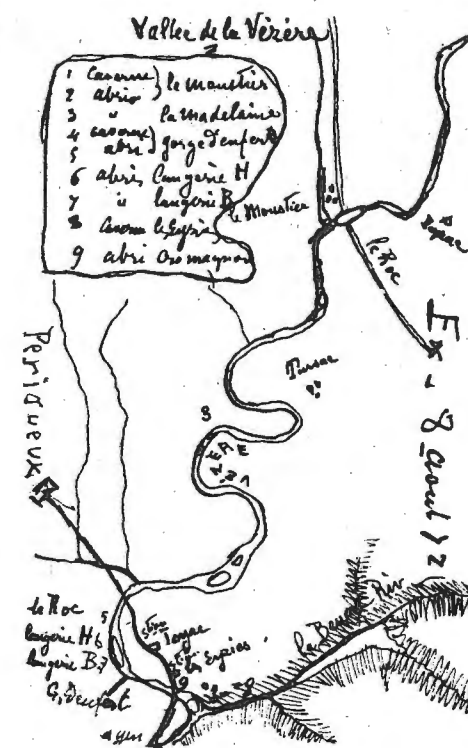 Vallée de la Vézère
1 Caverne } le Moustier
2 abris
3 " la Madelaine
4 caverne } gorge d'enfert
5 abri
6 abris Laugerie H
7 " Laugerie B
8 Caverne les Eyzies
9 abri Cromagnon
le Moustier
le Roc
Ex - 8 aout 72
Tursac
3
Perigueux
le Roc 5
Laugerie H 6
Laugerie B 7
G. d'enfert
Tayac
les Eyzies
9
la Beune Riv
agen